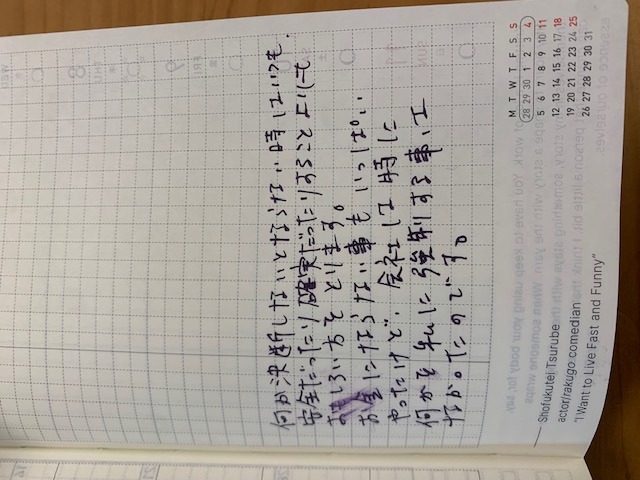 何か決断しないとならない時はいつも、
安全だったり確実だったりすることよりも
おもしろい方をとります。
お金にならない事もいっぱい
やったけど、会社は時に
何かを私に強制する事は
なかったのです。
Shofukutei Tsurube
actor/rakugo comedian
"I Want to Live Fast and Funny"
M T W T F S S
28 29 30 1 2 3 4
5 6 7 8 9 10 11
12 13 14 15 16 17 18
19 20 21 22 23 24 25
26 27 28 29 30 31